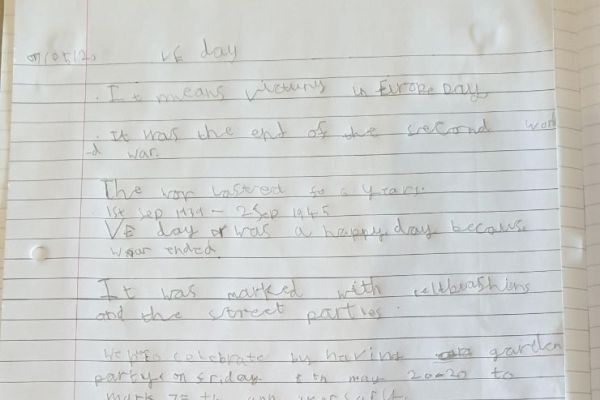 07/05/20 VE day
. It means victury in Europe Day
. It was the end of the second worl
-d war.
The war lasted for 6 years.
. 1st Sep 1939 - 2 Sep 1945
VE day was a happy day becaus
war ended.
It was marked with
and the street parties.
celebrate by having garden
party on friday 8th may 2020 to
mark 75th